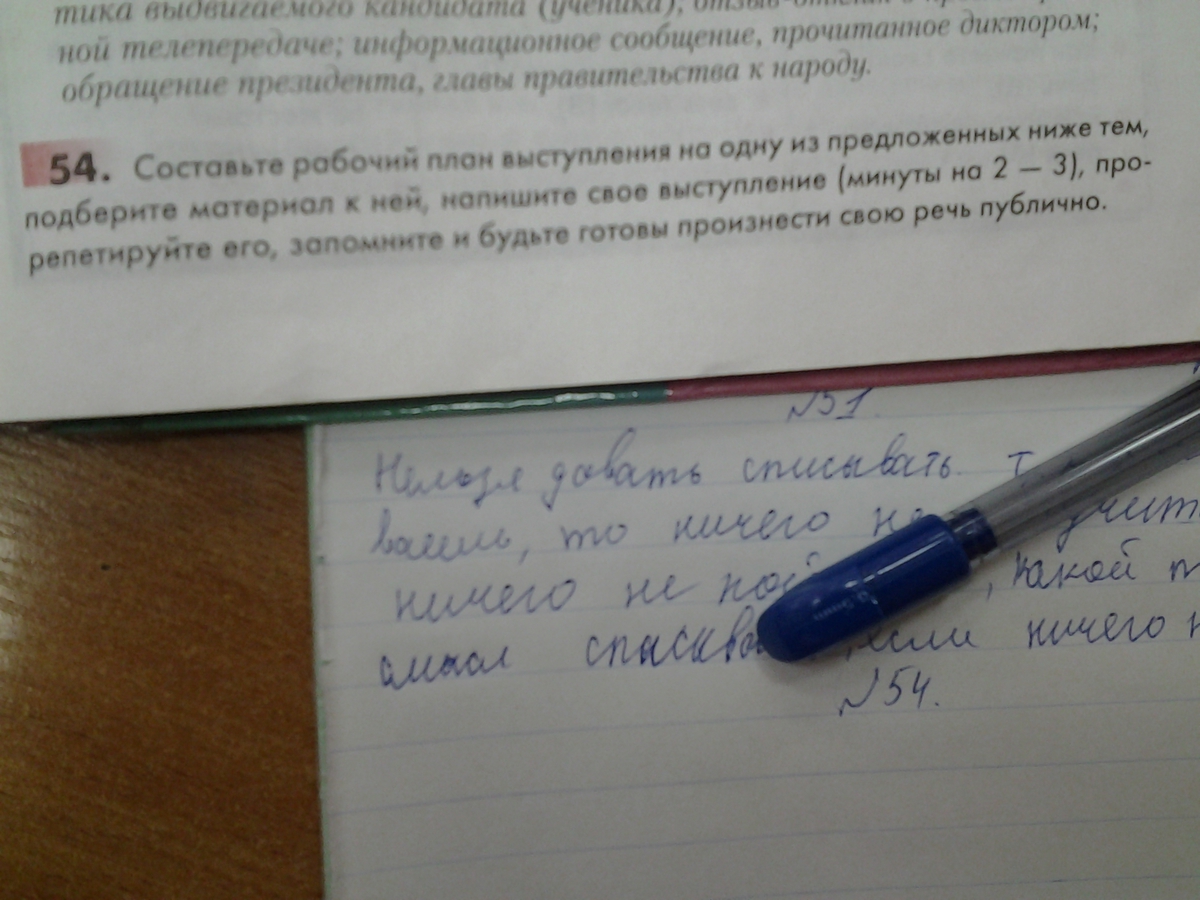 тика выдвигаемого кандидата (ученика);
ной телепередаче; информационное сообщение, прочитанное диктором;
обращение президента, главы правительства к народу.
54. Составьте рабочий план выступления на одну из предложенных ниже тем,
подберите материал к ней, напишите свое выступление (минуты на 2 — 3), про-
репетируйте его, запомните и будьте готовы произнести свою речь публично.
№51.
Нельзя давать списывать.
ваешь, то ничего не
ничего не , какой
смысл если ничего
№54.